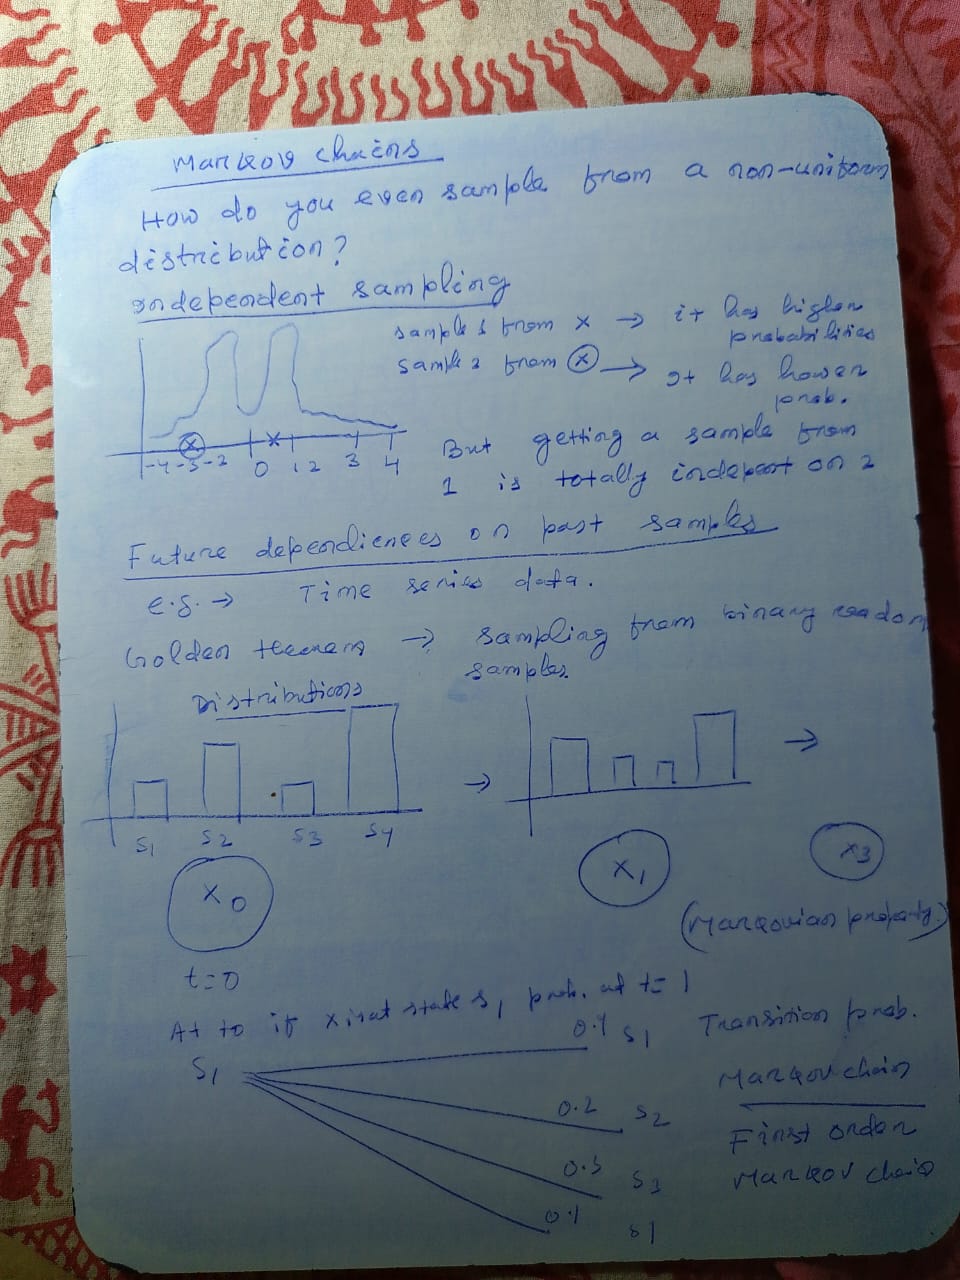 Markov chains
How do you even sample from a non-uniform
distribution?
Independent sampling
samples from x → it has higher
probabilities
samples from ⓧ → It has lower
prob.
-4 -3 -2 0 1 2 3 4
But getting a sample from
1 is totally indepent on 2
Future dependiences on past samples
e.g. → Time series data.
Golden theorem → sampling from binary random
samples.
Distributions
→ →
S1 S2 S3 S4
X0 X1 X3
(Markovian property)
t=0
At to if x is at state S1 prob. at t=1
S1 S1 Transition prob.
Markov chain
0.2 S2
First order
Markov chain
S3
0.1